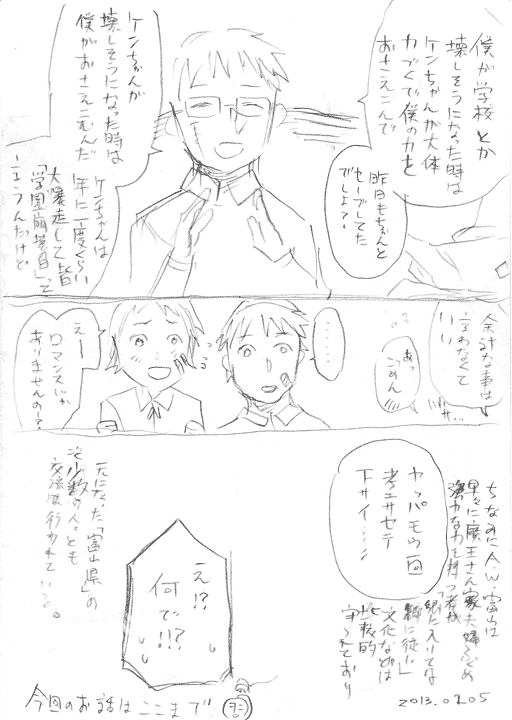 僕が学校とか
壊しそうになった時は
ケンちゃんが大体
力づくで僕の力を
おさえこんで
昨日もちゃんと
セーブしてた
でしょ?
ケンちゃんが
壊しそうになった時は
僕がおさえこむんだ
ケンちゃんは
年に一度くらい
大暴走して皆
「学園崩落の日」って
言うんだけど
余計な事は
言わなくて
いい
あっ
ごめん
……
えー
ロマンスじゃ
ありませんの〜?
ちなみにA.W.富山は
早々に魔王さん家夫婦ふくめ
強力な力を持つ者が
「郷に入りては
郷に従い」
文化などは
比較的
守られており
ヤッパモウ一回
考エサセテ
下サイ……
え!?
何で!!?
元になった「富山県」の
ごく少数の人々とも
交流は行われている。
今回のお話はここまで
2013.02.05